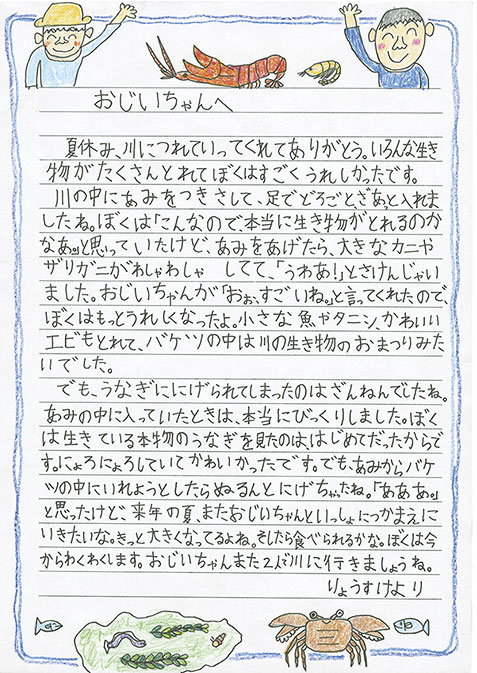 おじいちゃんへ
夏休み、川につれていってくれてありがとう。いろんな生き
物がたくさんとれてぼくはすごくうれしかったです。
川の中にあみをつきさして、足でどろごとざあっと入れま
したね。ぼくは「こんなので、本当に生き物がとれるのか
なあ。」と思っていたけど、あみをあげたら、大きなカニや
ザリガニがわしゃわしゃ してて、「うわあ!」とさけんじゃい
ました。おじいちゃんが「おぉ、すごいね。」と言ってくれたので、
ぼくはもっとうれしくなったよ。小さな魚やタニシ、かわいい
エビもとれて、バケツの中は川の生き物のおまつりみた
いでした。
でも、うなぎににげられてしまったのはざんねんでしたね。
あみの中に入っていたときは、本当にびっくりしました。ぼく
は生きている本物のうなぎを見たのは、はじめてだったからで
す。にょろにょろしていてかわいかったです。でも、あみからバケ
ツの中にいれようとしたらぬるんとにげちゃったね。「あああ。」
と思ったけど、来年の夏、またおじいちゃんといっしょにつかまえに
いきたいな。きっと大きくなってるよね。そしたら食べられるかな。ぼくは今
からわくわくします。おじいちゃんまた2人で川に行きましょうね。
りょうすけより